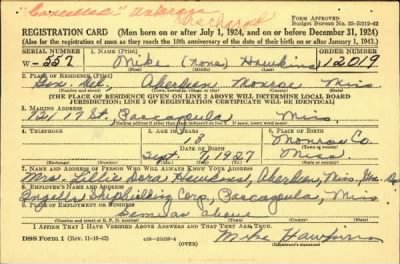 "Cancelled"
Discharged
REGISTRATION CARD (Men born on or after July 1, 1924, and on or before December 31, 1924)
FORM APPROVED
Budget Bureau No.
(Also for the registration of men as they reach the 18th anniversary of the date of their birth on or after January 1, 1943.)
SERIAL NUMBER 1. NAME (Print) ORDER NUMBER
W-557 Mike (None) Hawkins 12019
2. PLACE OF RESIDENCE (Print)
Aberdeen Monroe Miss
[THE PLACE OF RESIDENCE GIVEN ON LINE 2 ABOVE WILL DETERMINE LOCAL BOARD
JURISDICTION; LINE 2 OF REGISTRATION CERTIFICATE WILL BE IDENTICAL]
3. MAILING ADDRESS
17 St., Pascagoula Miss.
4. TELEPHONE 5. AGE IN YEARS 6. PLACE OF BIRTH
18 Monroe Co.
DATE OF BIRTH
Sept. 1927 Miss
7. NAME AND ADDRESS OF PERSON WHO WILL ALWAYS KNOW YOUR ADDRESS
Mrs. Dora Hawkins, Aberdeen, Miss.
8. EMPLOYER'S NAME AND ADDRESS
Ingalls Shipbuilding Corp., Pascagoula, Miss
9. PLACE OF EMPLOYMENT OR BUSINESS
Same as above
I AFFIRM THAT I HAVE VERIFIED ABOVE ANSWERS AND THAT THEY ARE TRUE.
DSS Form 1 (Rev. 11-16-42) Mike Hawkins